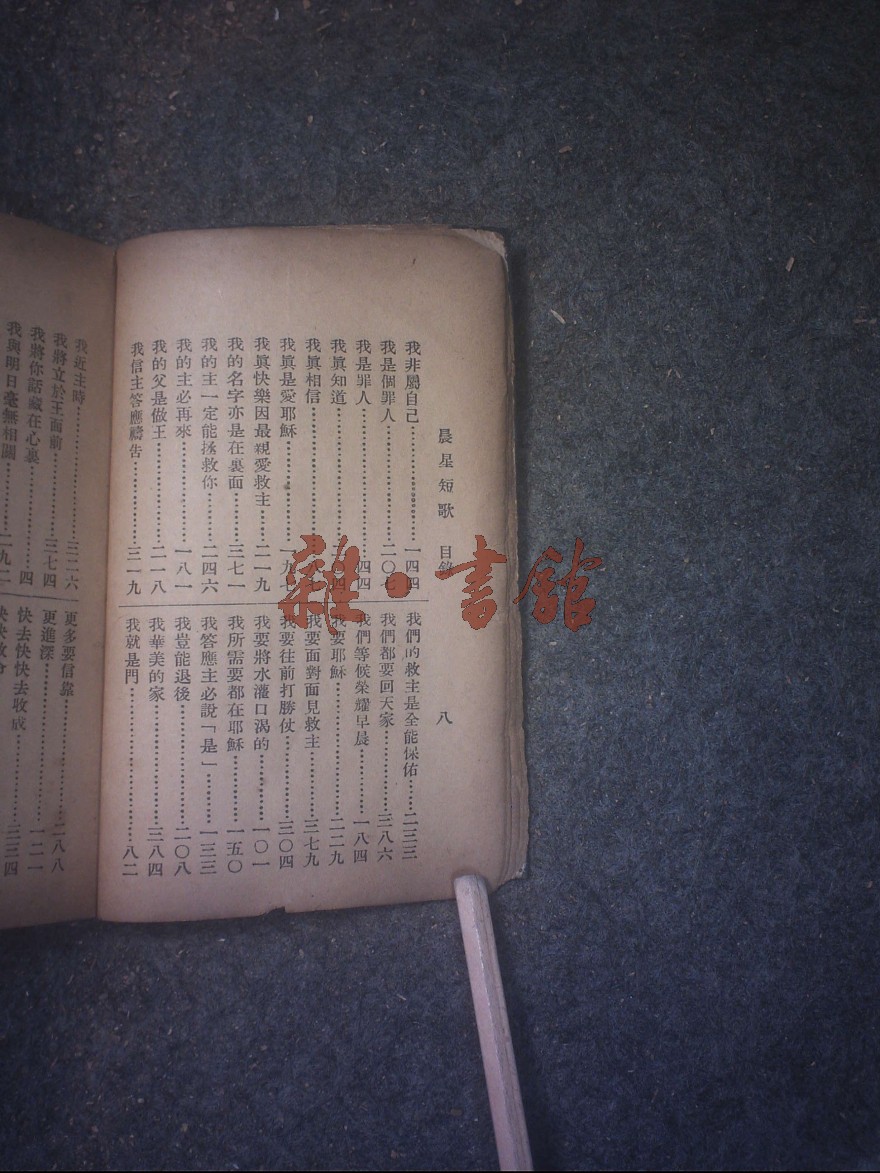 晨星短歌 目錄 八
我非屬自己 一四四
我是個罪人 二〇七
我是罪人 四四
我眞知道
我眞相信
我眞是愛耶穌 一九七
我眞快樂因最親愛救主 二一九
我的名字亦是在裏面 三七一
我的主一定能拯救你 二四六
我的主必再來 一八一
我的父是做王 二一八
我信主答應禱告 三一九
我們的救主是全能保佑 二三三
我們都要回天家 三八六
我們等候榮耀早晨 一八四
我要耶穌 二二九
我要面對面見救主 三七九
我要往前打勝仗 三〇四
我要將水灌口渴的 一〇一
我所需要都在耶穌 一五〇
我答應主必說「是」 一三三
我豈能退後 二〇八
我華美的家 三八四
我就是門 八二
我近主時 三二六
我將立於王面前 三七四
我將你話藏在心裏 四
我與明日毫無相關 二九二
更多要信靠 二八八
更進深 一二一
快去快快去收成 三三四
雜·書館